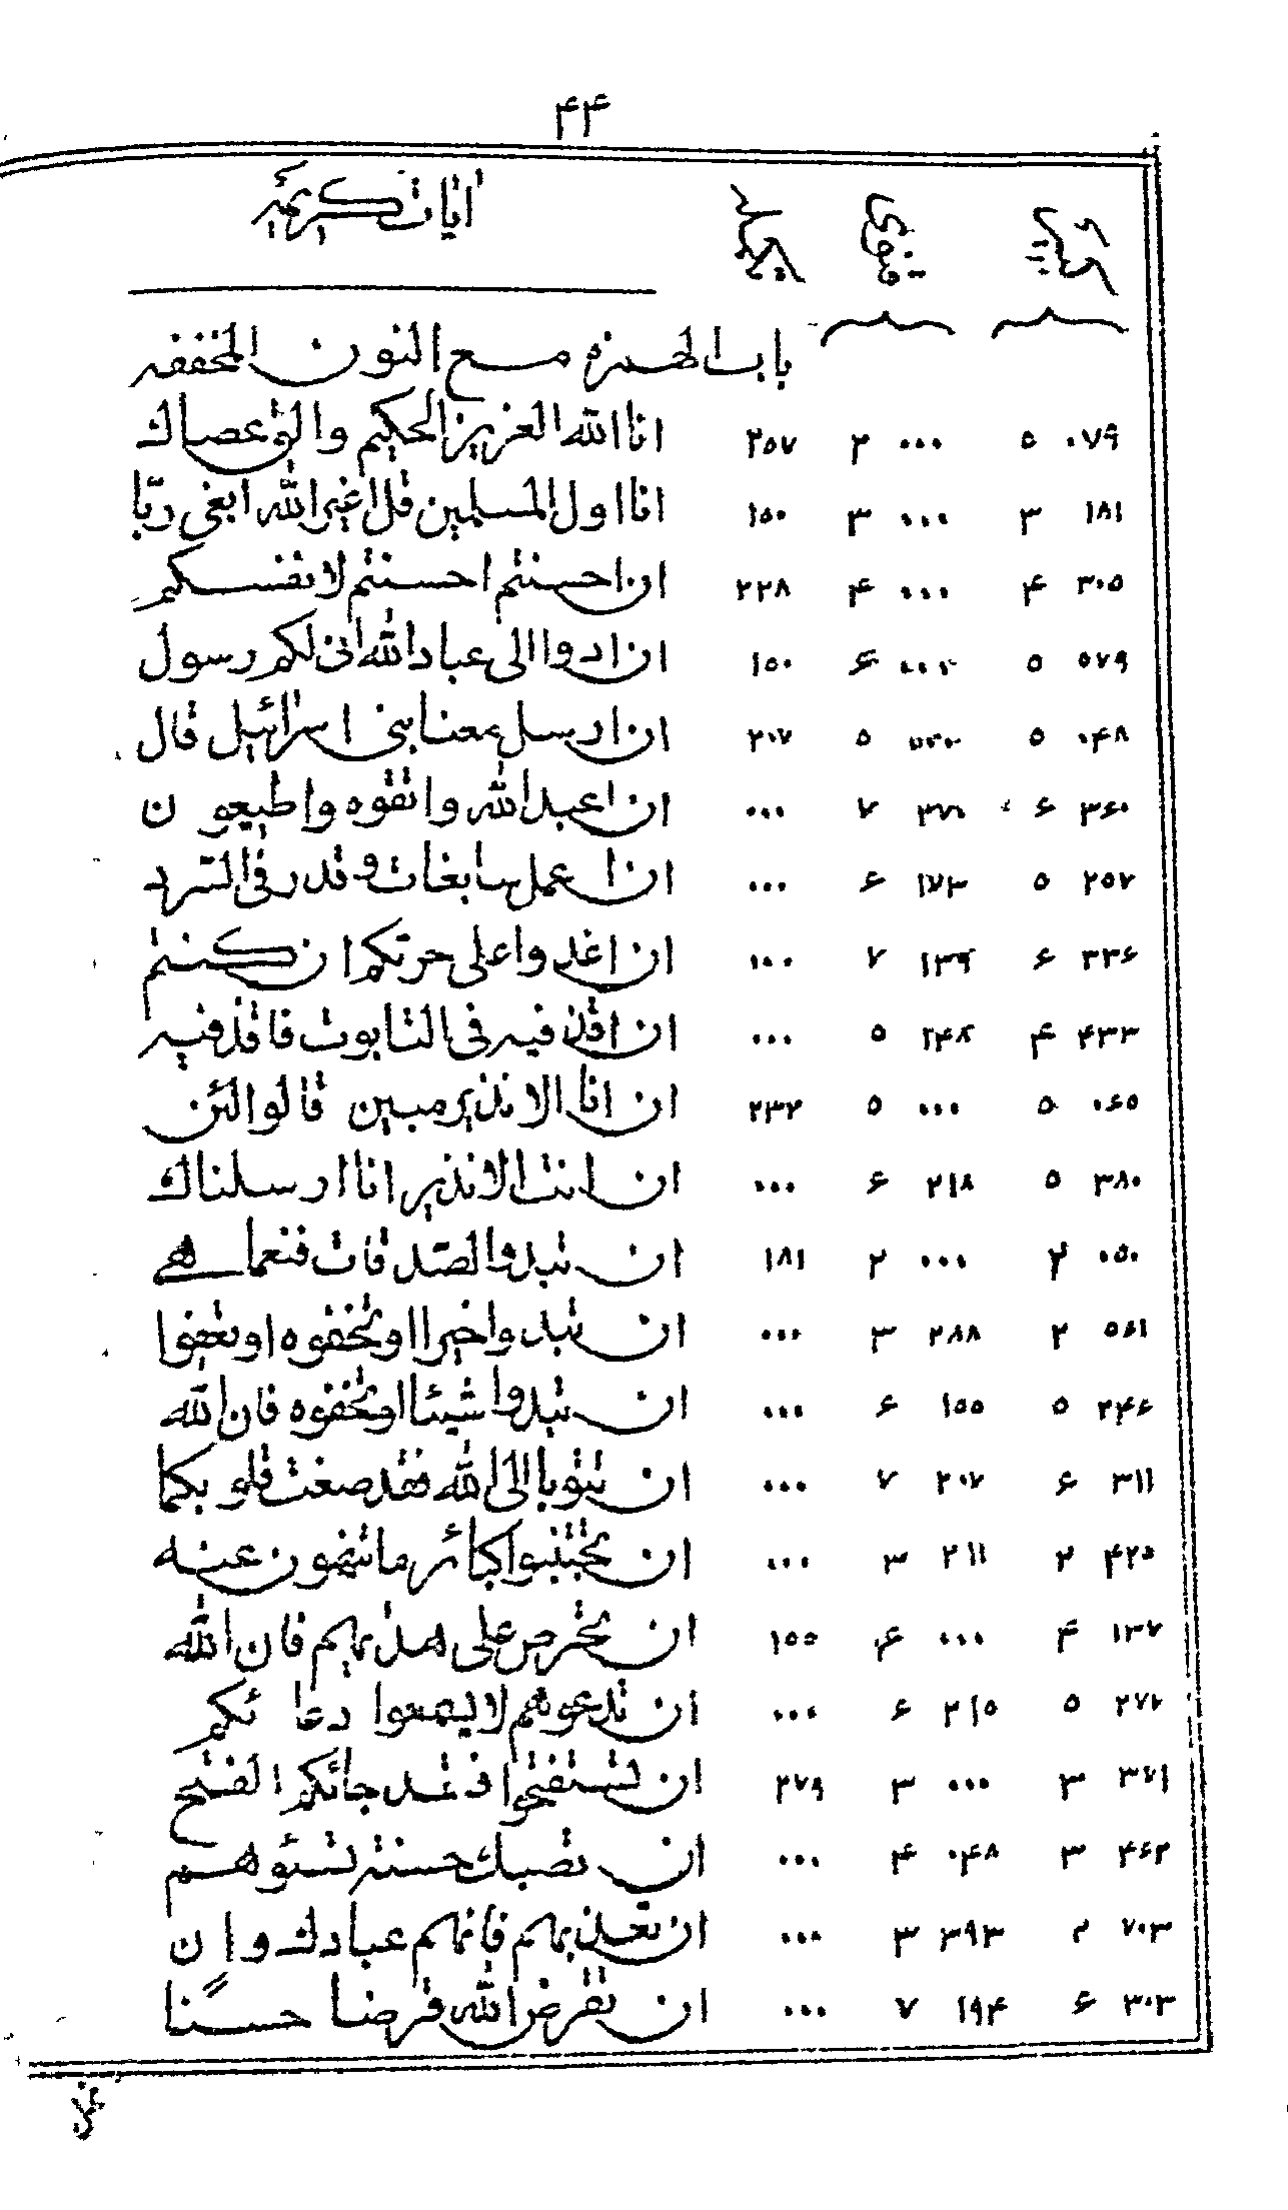 ۴۴
اٰیات کریمه
باب الهمزه مع النون المخففه
۰۷۹ ۵ ۰۰۰ ۲ ۲۵۷ انا الله العزیز الحکیم والق عصاك
۱۸۱ ۳ ۰۰۰ ۳ ۱۵۰ انا اول المسلمین قل اغیر الله ابغی ربّا
۳۰۵ ۴ ۰۰۰ ۴ ۲۲۸ ان احسنتم احسنتم لانفسکم
۵۷۹ ۵ ۶ ۱۵۰ ان ادوا الی عباد الله انی لکم رسول
۰۴۸ ۵ ۵ ۲۰۷ ان ارسل معنا بنی اسرائیل قال
۳۶۰ ۶ ۷ ۰۰۰ ان اعبد الله واتقوه واطیعون
۲۵۷ ۵ ۱۷۳ ۶ ۰۰۰ ان اعمل سابغات وقدر فی السّرد
۳۳۶ ۶ ۱۳۹ ۷ ۰۰۰ ان اغدوا علی حرثکم ان کنتم
۴۳۳ ۴ ۵ ۰۰۰ ان اقذ فیه فی التابوت فاقذفیه
۰۶۵ ۵ ۰۰۰ ۵ ۲۳۲ ان انا الا نذیر مبین قالوا لئن
۳۸۰ ۵ ۲۱۸ ۶ ۰۰۰ ان انت الا نذیر انا ارسلناك
۰۵۰ ۲ ۰۰۰ ۲ ۱۸۱ ان تبدوا الصّدقات فنعما هی
۲ ۲۸۸ ۳ ۰۰۰ ان تبدوا خیرا او تخفوه او تعفوا
۲۴۶ ۵ ۱۵۵ ۶ ۰۰۰ ان تبدوا شیئا او تخفوه فان الله
۳۱۱ ۶ ۲۰۷ ۷ ۰۰۰ ان تتوبا الی الله فقد صغت قلوبکما
۴۲۵ ۲ ۲۱۱ ۳ ۰۰۰ ان تجتنبوا کبائر ما تنهون عنه
۱۳۷ ۴ ۰۰۰ ۴ ۱۵۵ ان تحرص علی هدٰیهم فان الله
۲۷۲ ۵ ۲۱۵ ۶ ۰۰۰ ان تدعوهم لا یسمعوا دعائکم
۳۷۱ ۳ ۰۰۰ ۳ ۲۷۹ ان تستفتحوا فقد جائکم الفتح
۴۶۲ ۳ ۰۴۸ ۴ ۰۰۰ ان تصبك حسنة تسئوهم
۷۰۳ ۲ ۳۹۳ ۳ ۰۰۰ ان تعذبهم فانهم عبادك وان
۳۰۳ ۶ ۱۹۴ ۷ ۰۰۰ ان تقرض الله قرضا حسنًا